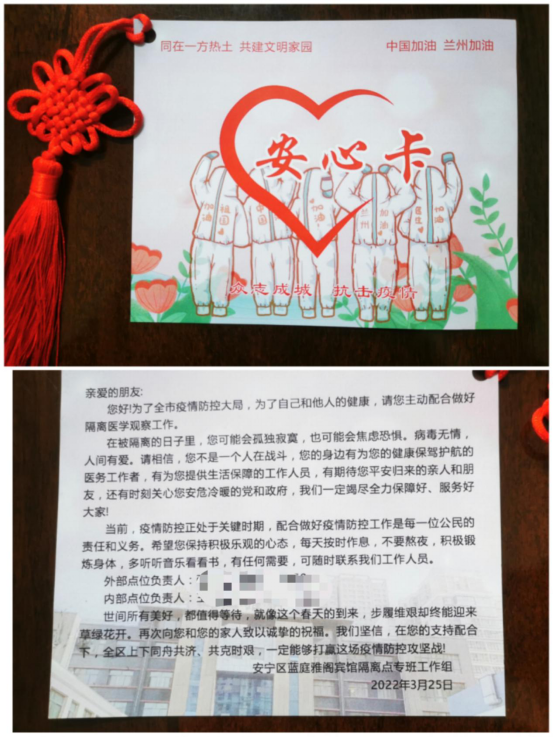 同在一方热土 共建文明家园
中国加油 兰州加油
安心卡
加油
祖国
中国
加油
加油
兰州
加油
众志成城 抗击疫情
亲爱的朋友:
您好!为了全市疫情防控大局，为了自己和他人的健康，请您主动配合做好
隔离医学观察工作。
在被隔离的日子里，您可能会孤独寂寞，也可能会焦虑恐惧。病毒无情，
人间有爱。请相信，您不是一个人在战斗，您的身边有为您的健康保驾护航的
医务工作者，有为您提供生活保障的工作人员，有期待您平安归来的亲人和朋
友，还有时刻关心您安危冷暖的党和政府，我们一定竭尽全力保障好、服务好
大家!
当前，疫情防控正处于关键时期，配合做好疫情防控工作是每一位公民的
责任和义务。希望您保持积极乐观的心态，每天按时作息，不要熬夜，积极锻
炼身体，多听听音乐看看书，有任何需要，可随时联系我们工作人员。
外部点位负责人：
内部点位负责人：
世间所有美好，都值得等待，就像这个春天的到来，步履维艰却终能迎来
草绿花开。再次向您和您的家人致以诚挚的祝福。我们坚信，在您的支持配合
下，全区上下同舟共济、共克时艰，一定能够打赢这场疫情防控攻坚战!
安宁区蓝庭雅阁宾馆隔离点专班工作组
2022年3月25日